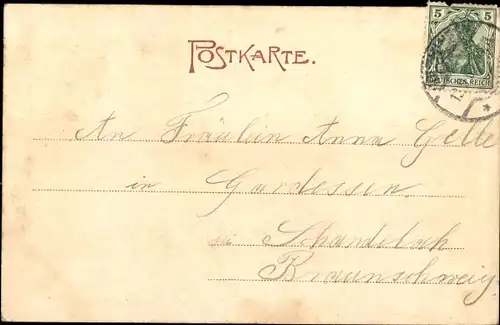 5 5
DEUTSCHES REICH
POSTKARTE.
An Fräulein Anna Gelle
in Gardessen.
Schandelach
Braunschweig